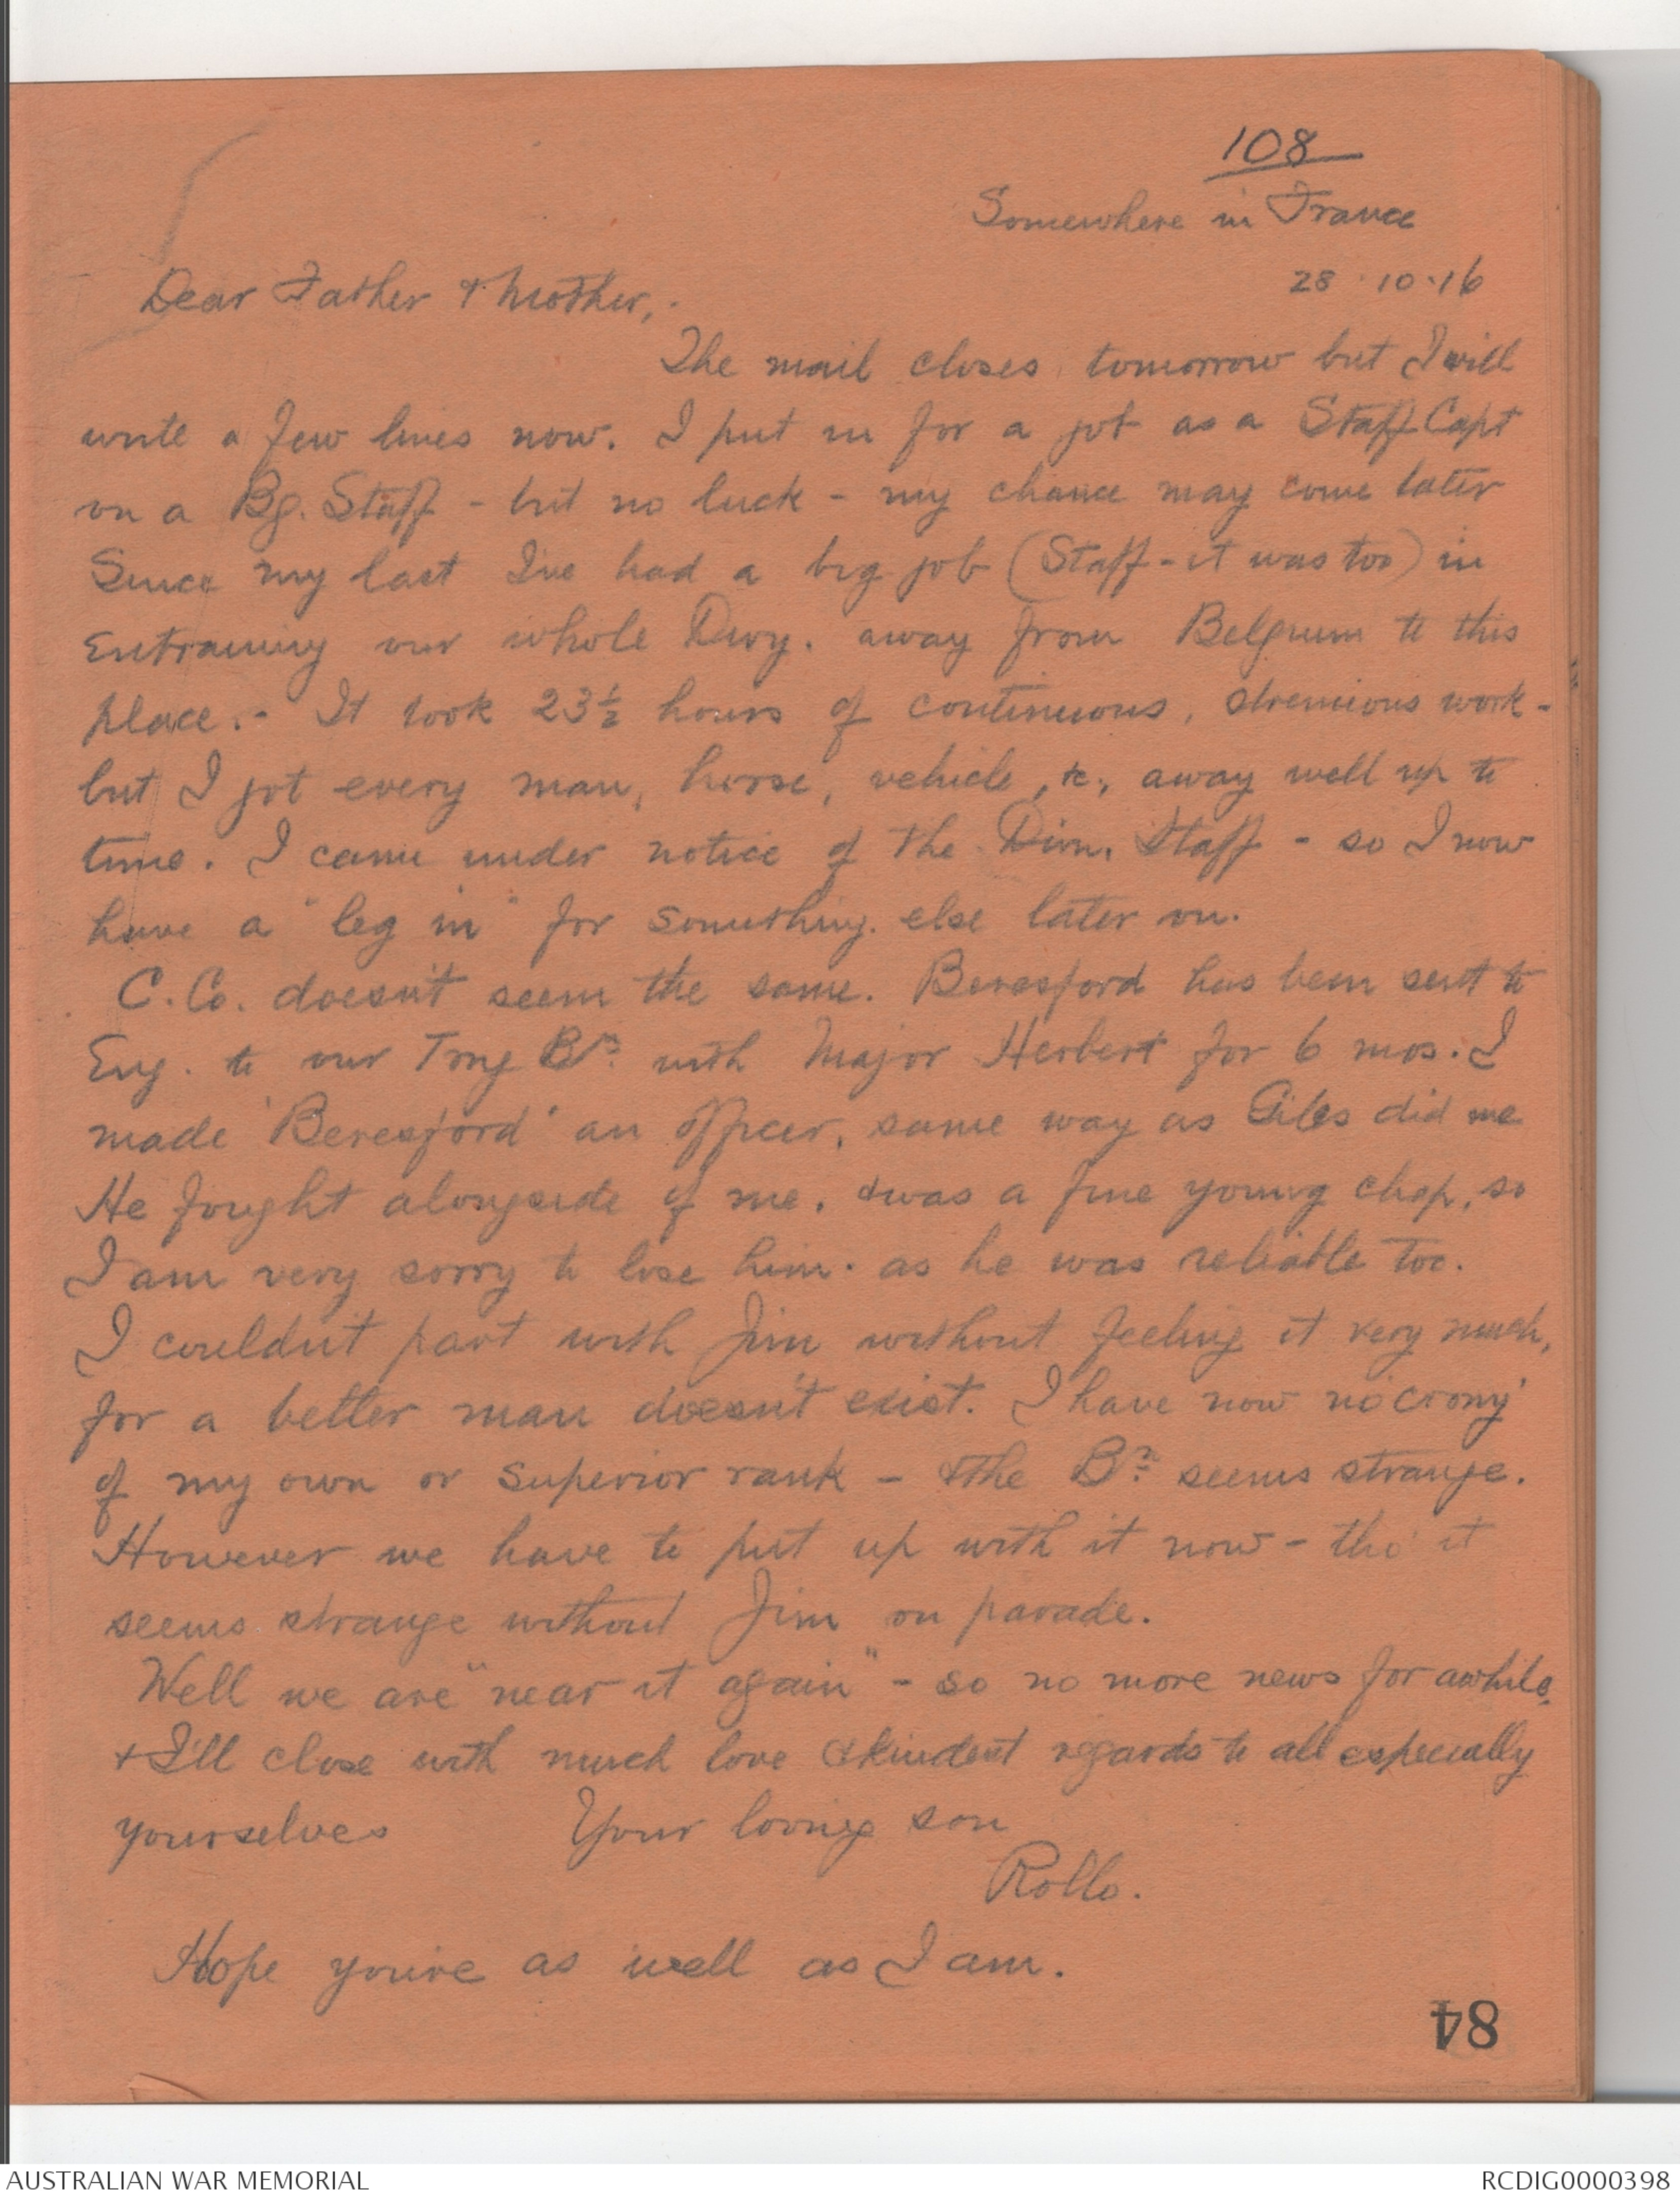 108
Somewhere in France
28.10.16
Dear Father & Mother,.
The mail closes tomorrow but I will
write a few lines now. I put in for a job as a Staff Capt
on a Bg. Staff - but no luck - my chance may come later
Since my last I've had a big job (Staff - it was too) in
Entraining our whole away from Belgium to this
place. - It took 23½ hours of continuous, strenuous work -
but I got every man, horse, vehicle, &c, away well up to
time. I came under notice of the Divn. Staff - so I now
have a "leg in" for something else later on.
C. Co. doesn't seem the same. Beresford has been sent to
Eng. to our Trng Bn. with Major Herbert for 6 mos. I
made 'Beresford' an officer, same way as Giles did me
He fought alongside of me, & was a fine young chap, so
I am very sorry to lose him. as he was reliable too.
I couldn't part with Jim without feeling it very much,
for a better man doesn't exist. I have now no 'crony'
of my own or superior rank - & the Bn. seems strange.
However we have to put up with it now - tho' it
seems strange without Jim on parade.
Well we are "near it again" - so no more news for awhile,
& I'll close with much love & kindest regards to all especially
yourselves Your loving son
Rollo.
Hope you're as well as I am.
84
AUSTRALIAN WAR MEMORIAL
RCDIG0000398